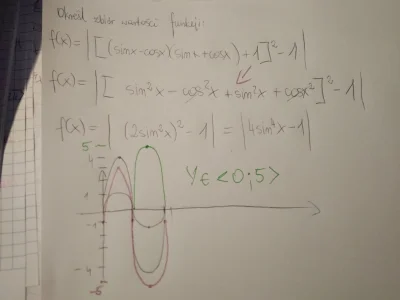 Określ zbiór wartości funkcji:
f(x)=|[(sinx-cosx)(sinx+cosx)+1]²-1|
f(x)=|[sin²x-cos²x+sin²x+cos²x]²-1|
f(x)=|(2sin²x)²-1|=|4sin⁴x-1|
5
4
Y∈<0;5>
1
-1
-4